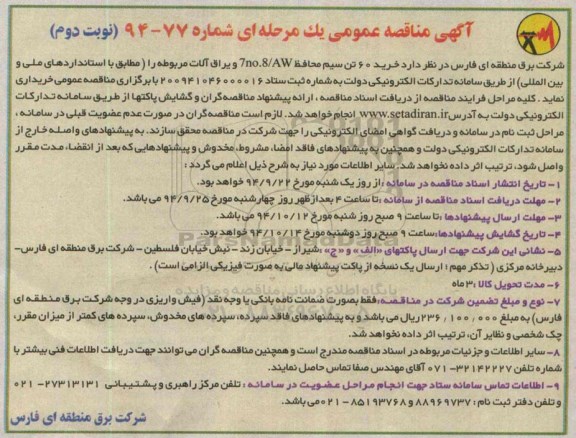 آگهی مناقصه عمومی یك مرحله ای شماره ۷۷-۹۴ (نوبت دوم)
شرکت برق منطقه ای فارس در نظر دارد خرید ۶۰ تن سیم محافظ 7no.8/AW و یراق آلات مربوطه را (مطابق با استانداردهای ملی و
بین المللی) از طریق سامانه تدارکات الکترونیکی دولت به شماره ثبت ستاد ۲۰۰۹۴۱۰۴۶۰۰۰۰۱۶ با برگزاری مناقصه عمومی خریداری
نماید. کلیه مراحل فرایند مناقصه از دریافت اسناد مناقصه، ارائه پیشنهاد مناقصه گران و گشایش پاکتها از طریق سامانه تدارکات
الکترونیکی دولت به آدرس www.setadiran.ir انجام خواهد شد. لازم است مناقصه گران در صورت عدم عضویت قبلی در سامانه،
مراحل ثبت نام در سامانه و دریافت گواهی امضای الکترونیکی را جهت شرکت در مناقصه محقق سازند. به پیشنهادهای واصله خارج از
سامانه تدارکات الکترونیکی دولت و همچنین به پیشنهادهای فاقد امضا، مشروط، مخدوش و پیشنهادهایی که بعد از انقضاء مدت مقرر
واصل شود، ترتیب اثر داده نخواهد شد. سایر اطلاعات مورد نیاز به شرح ذیل اعلام می گردد:
۱- تاریخ انتشار اسناد مناقصه در سامانه: از روز یک شنبه مورخ ۹۴/۹/۲۲ خواهد بود.
۲- مهلت دریافت اسناد مناقصه از سامانه: تا ساعت ۴ بعدازظهر روز چهارشنبه مورخ ۹۴/۹/۲۵ می باشد.
۳- مهلت ارسال پیشنهادها: تا ساعت ۹ صبح روز شنبه مورخ ۹۴/۱۰/۱۲ می باشد.
۴- تاریخ گشایش پیشنهادها: ساعت ۹ صبح روز دوشنبه مورخ ۹۴/۱۰/۱۴ خواهد بود.
۵- نشانی این شرکت جهت ارسال پاکتهای «الف» و «ج»: شیراز- خیابان زند- نبش خیابان فلسطین- شرکت برق منطقه ای فارس-
دبیرخانه مرکزی (تذکر مهم: ارسال یک نسخه از پاکت پیشنهاد مالی به صورت فیزیکی الزامی است).
۶- مدت تحویل کالا: ۳ ماه
۷- نوع و مبلغ تضمین شرکت در مناقصه: فقط بصورت ضمانت نامه بانکی یا وجه نقد (فیش واریزی در وجه شرکت برق منطقه ای
فارس) به مبلغ ۲۳۶,۱۰۰,۰۰۰ ریال می باشد و به پیشنهادهای فاقد سپرده، سپرده های مخدوش، سپرده های کمتر از میزان مقرر،
چک شخصی و نظایر آن، ترتیب اثر داده نخواهد شد.
۸- سایر اطلاعات و جزئیات مربوطه در اسناد مناقصه مندرج است و همچنین مناقصه گران می توانند جهت دریافت اطلاعات فنی بیشتر با
شماره تلفن ۳۲۱۴۲۲۲۷-۰۷۱ آقای مهندس صفا تماس حاصل نمایند.
۹- اطلاعات تماس سامانه ستاد جهت انجام مراحل عضویت در سامانه: تلفن مرکز راهبری و پشتیبانی ۲۷۳۱۳۱۳۱-۰۲۱
و تلفن دفتر ثبت نام: ۸۸۹۶۹۷۳۷ و ۸۵۱۹۳۷۶۸-۰۲۱ می باشد.
شرکت برق منطقه ای فارس